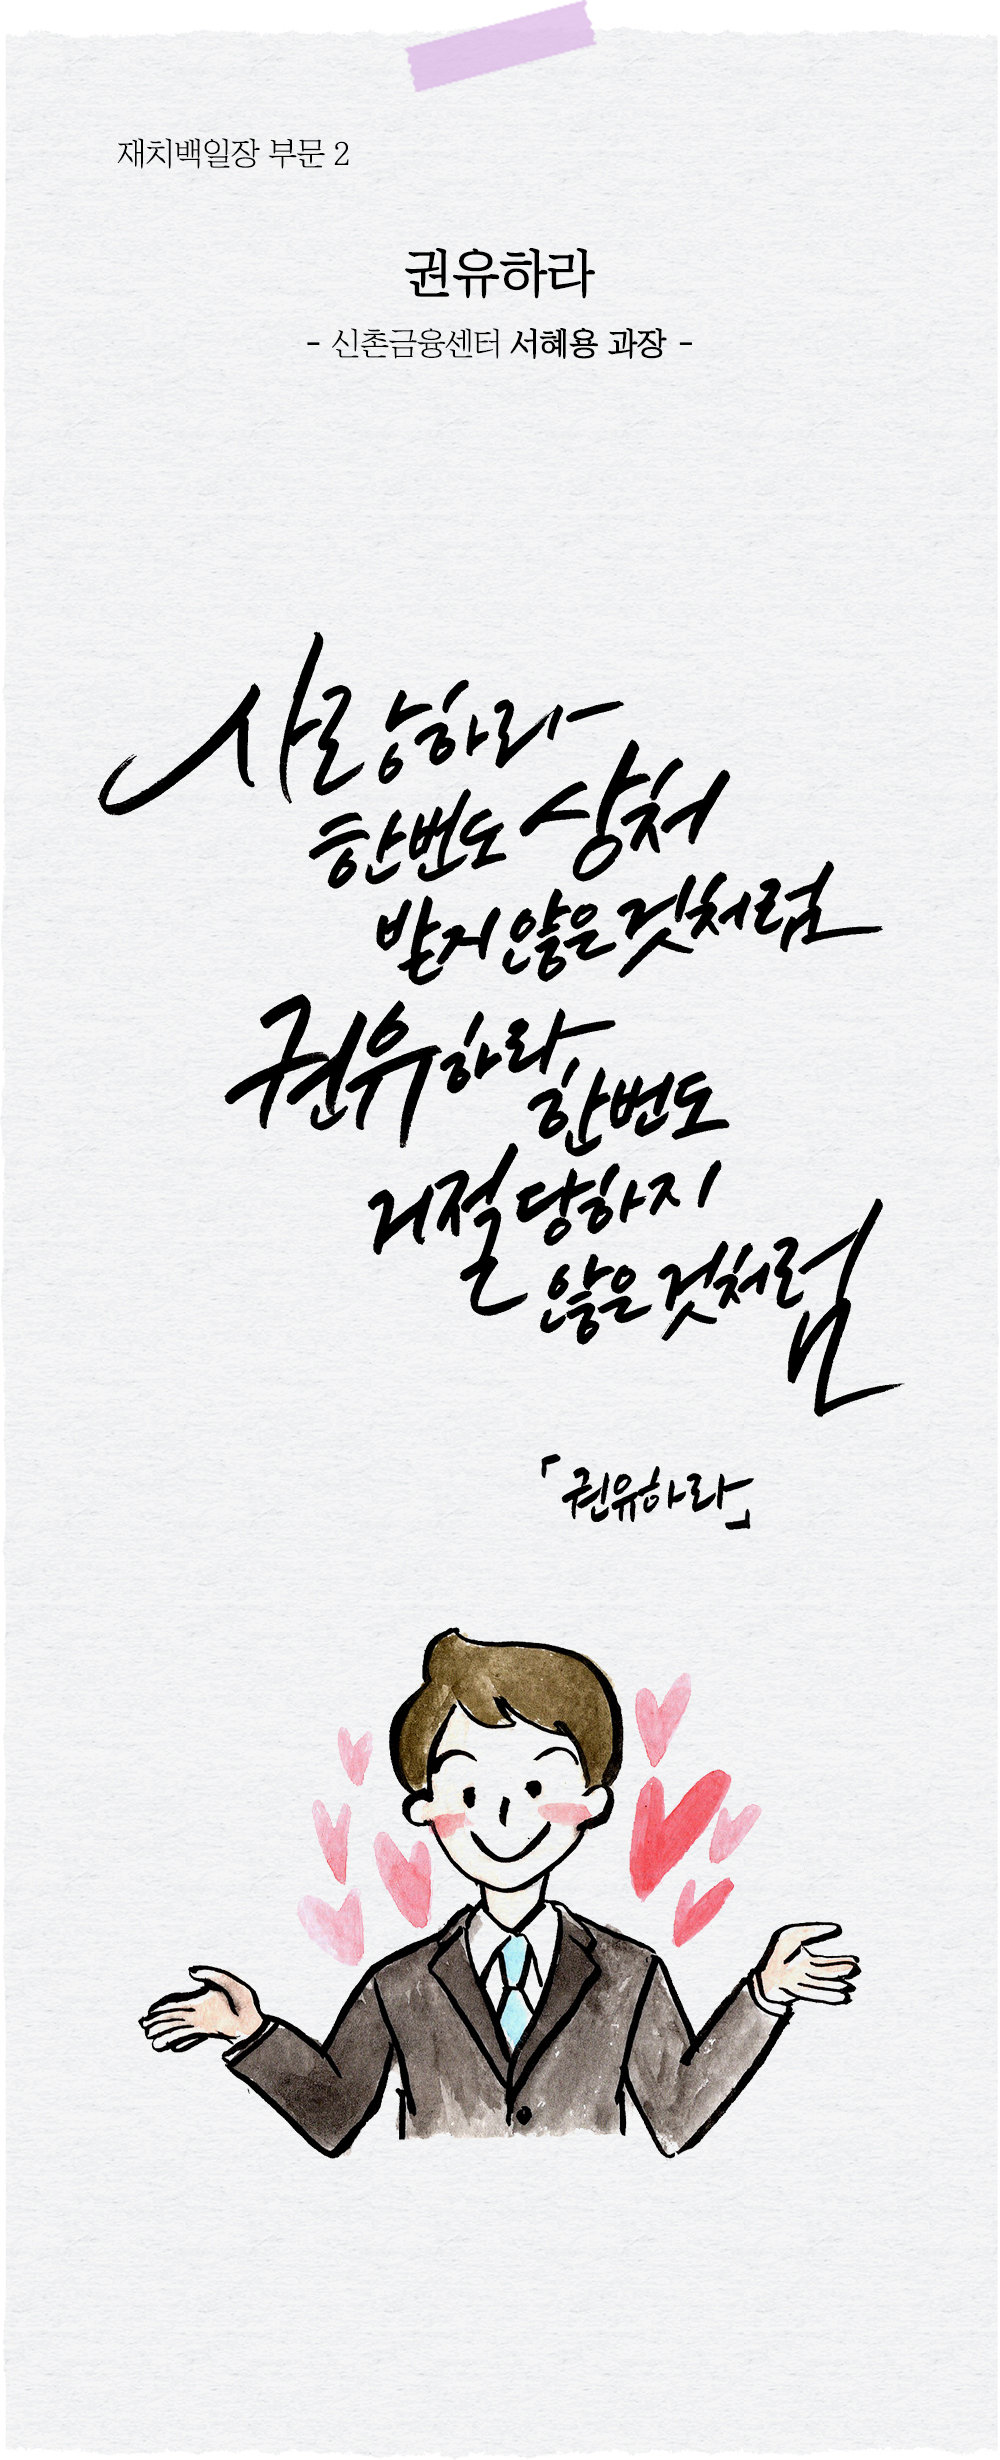 재치백일장 부문 2
권유하라
- 신촌금융센터 서혜용 과장 -
사랑하라
한번도 상처
받지 않은 것처럼
권유하라 한번도
거절당하지
않은 것처럼
「권유하라」